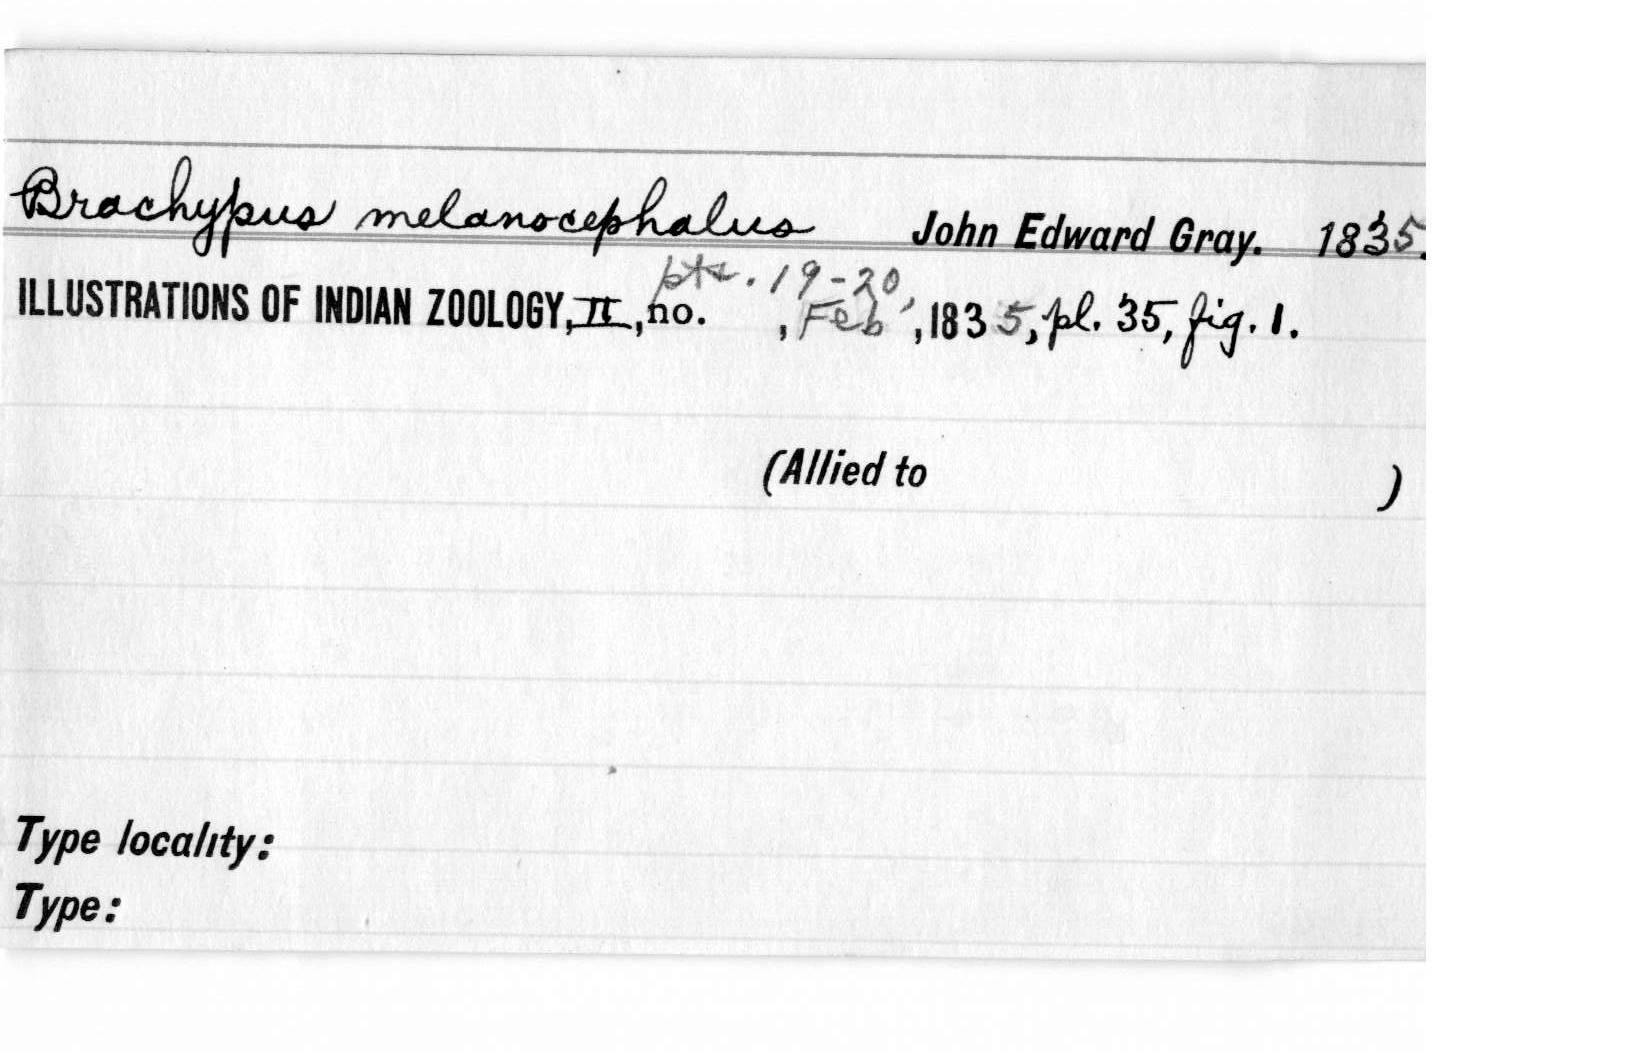 Brachypus melanocephalus John Edward Gray. 1835.
pts. 19-20,
ILLUSTRATIONS OF INDIAN ZOOLOGY, II, no. , Feb , 1835, pl. 35, fig. 1.
(Allied to )
Type locality:
Type: